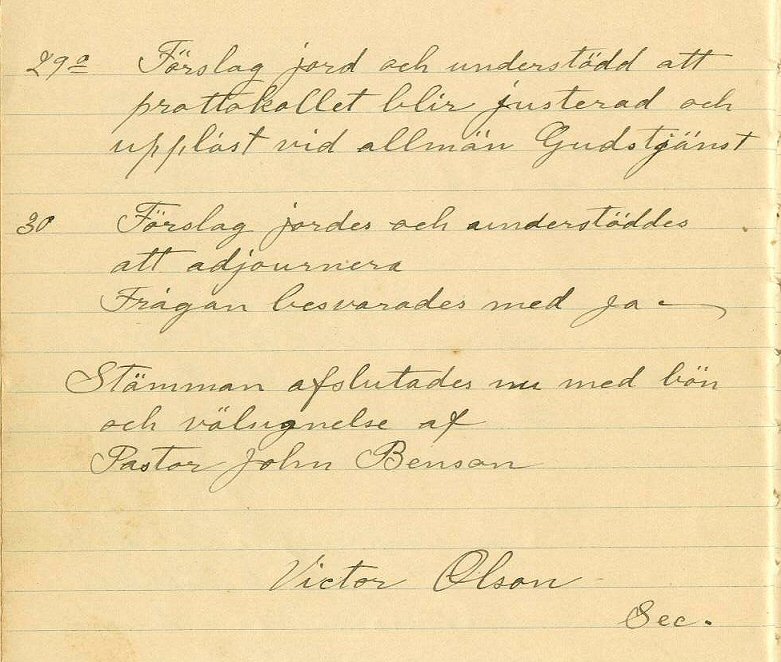 29º Förslag jord och understödd att
prottokollet blir justerad och
uppläst vid allmän Gudstjänst
30 Förslag jordes och understöddes
att adjournera
Frågan besvarades med ja.
Stämman afslutades nu med bön
och välsignelse af
Pastor John Benson
Victor Olson
Sec.